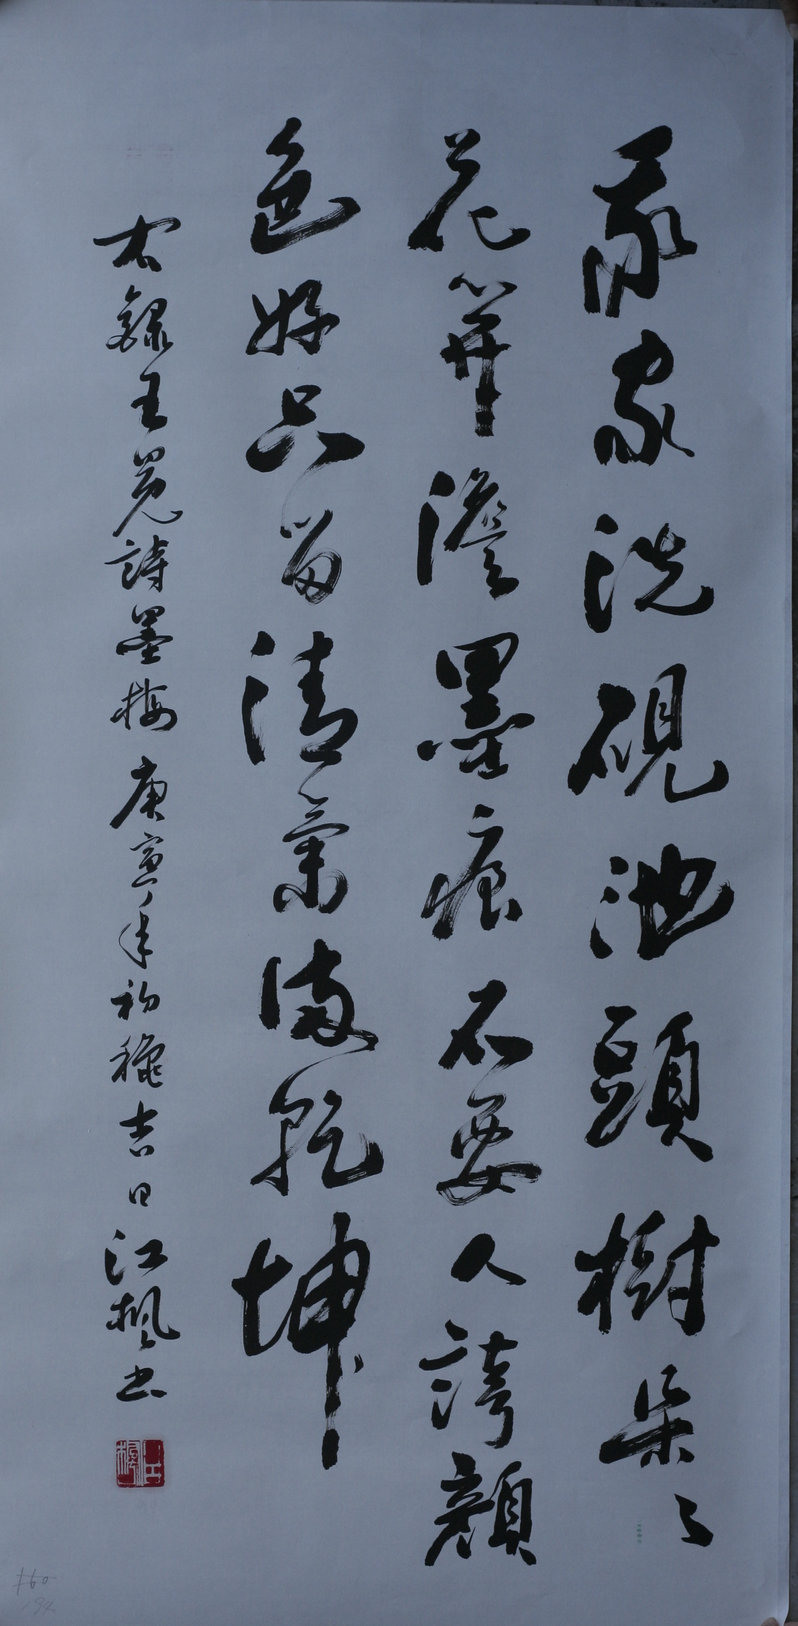 我家洗硯池頭樹朵々
花開澹墨痕不要人誇顏
色好只留清氣滿乾坤
右録王冕詩墨梅庚寅年初穐吉日江楓书
江楓